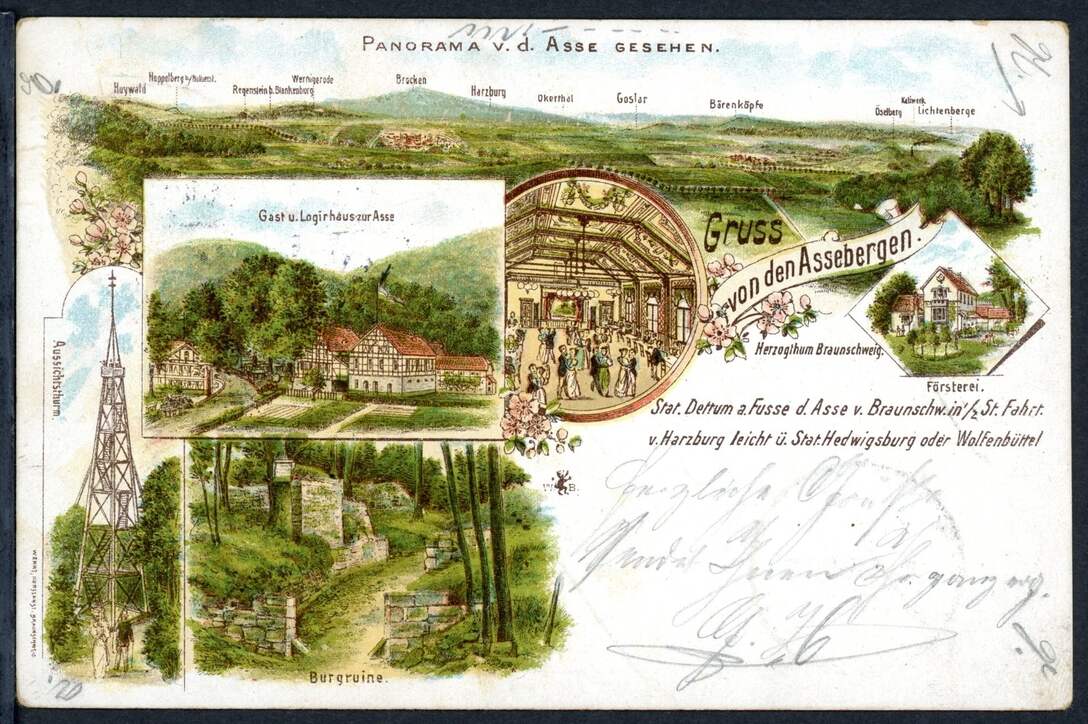 PANORAMA v. d. ASSE GESEHEN.
Huywald
Hoppelberg b/Halberst.
Regenstein b. Blankenburg
Wernigerode
Brocken
Harzburg
Okerthal
Goslar
Bärenköpfe
Öselberg
Kaliwerk
Lichtenberge
Gast u. Logirhaus zur Asse
GRUSS
von den Assebergen.
Herzogthum Braunschweig.
Försterei.
Aussichtsthurm.
Stat. Dettum a. Fusse d. Asse v. Braunschw. in 1/2 St. Fahrt.
v. Harzburg leicht ü. Stat. Hedwigsburg oder Wolfenbüttel
W. B.
Burgruine.
Herzliche
sendet Ihnen